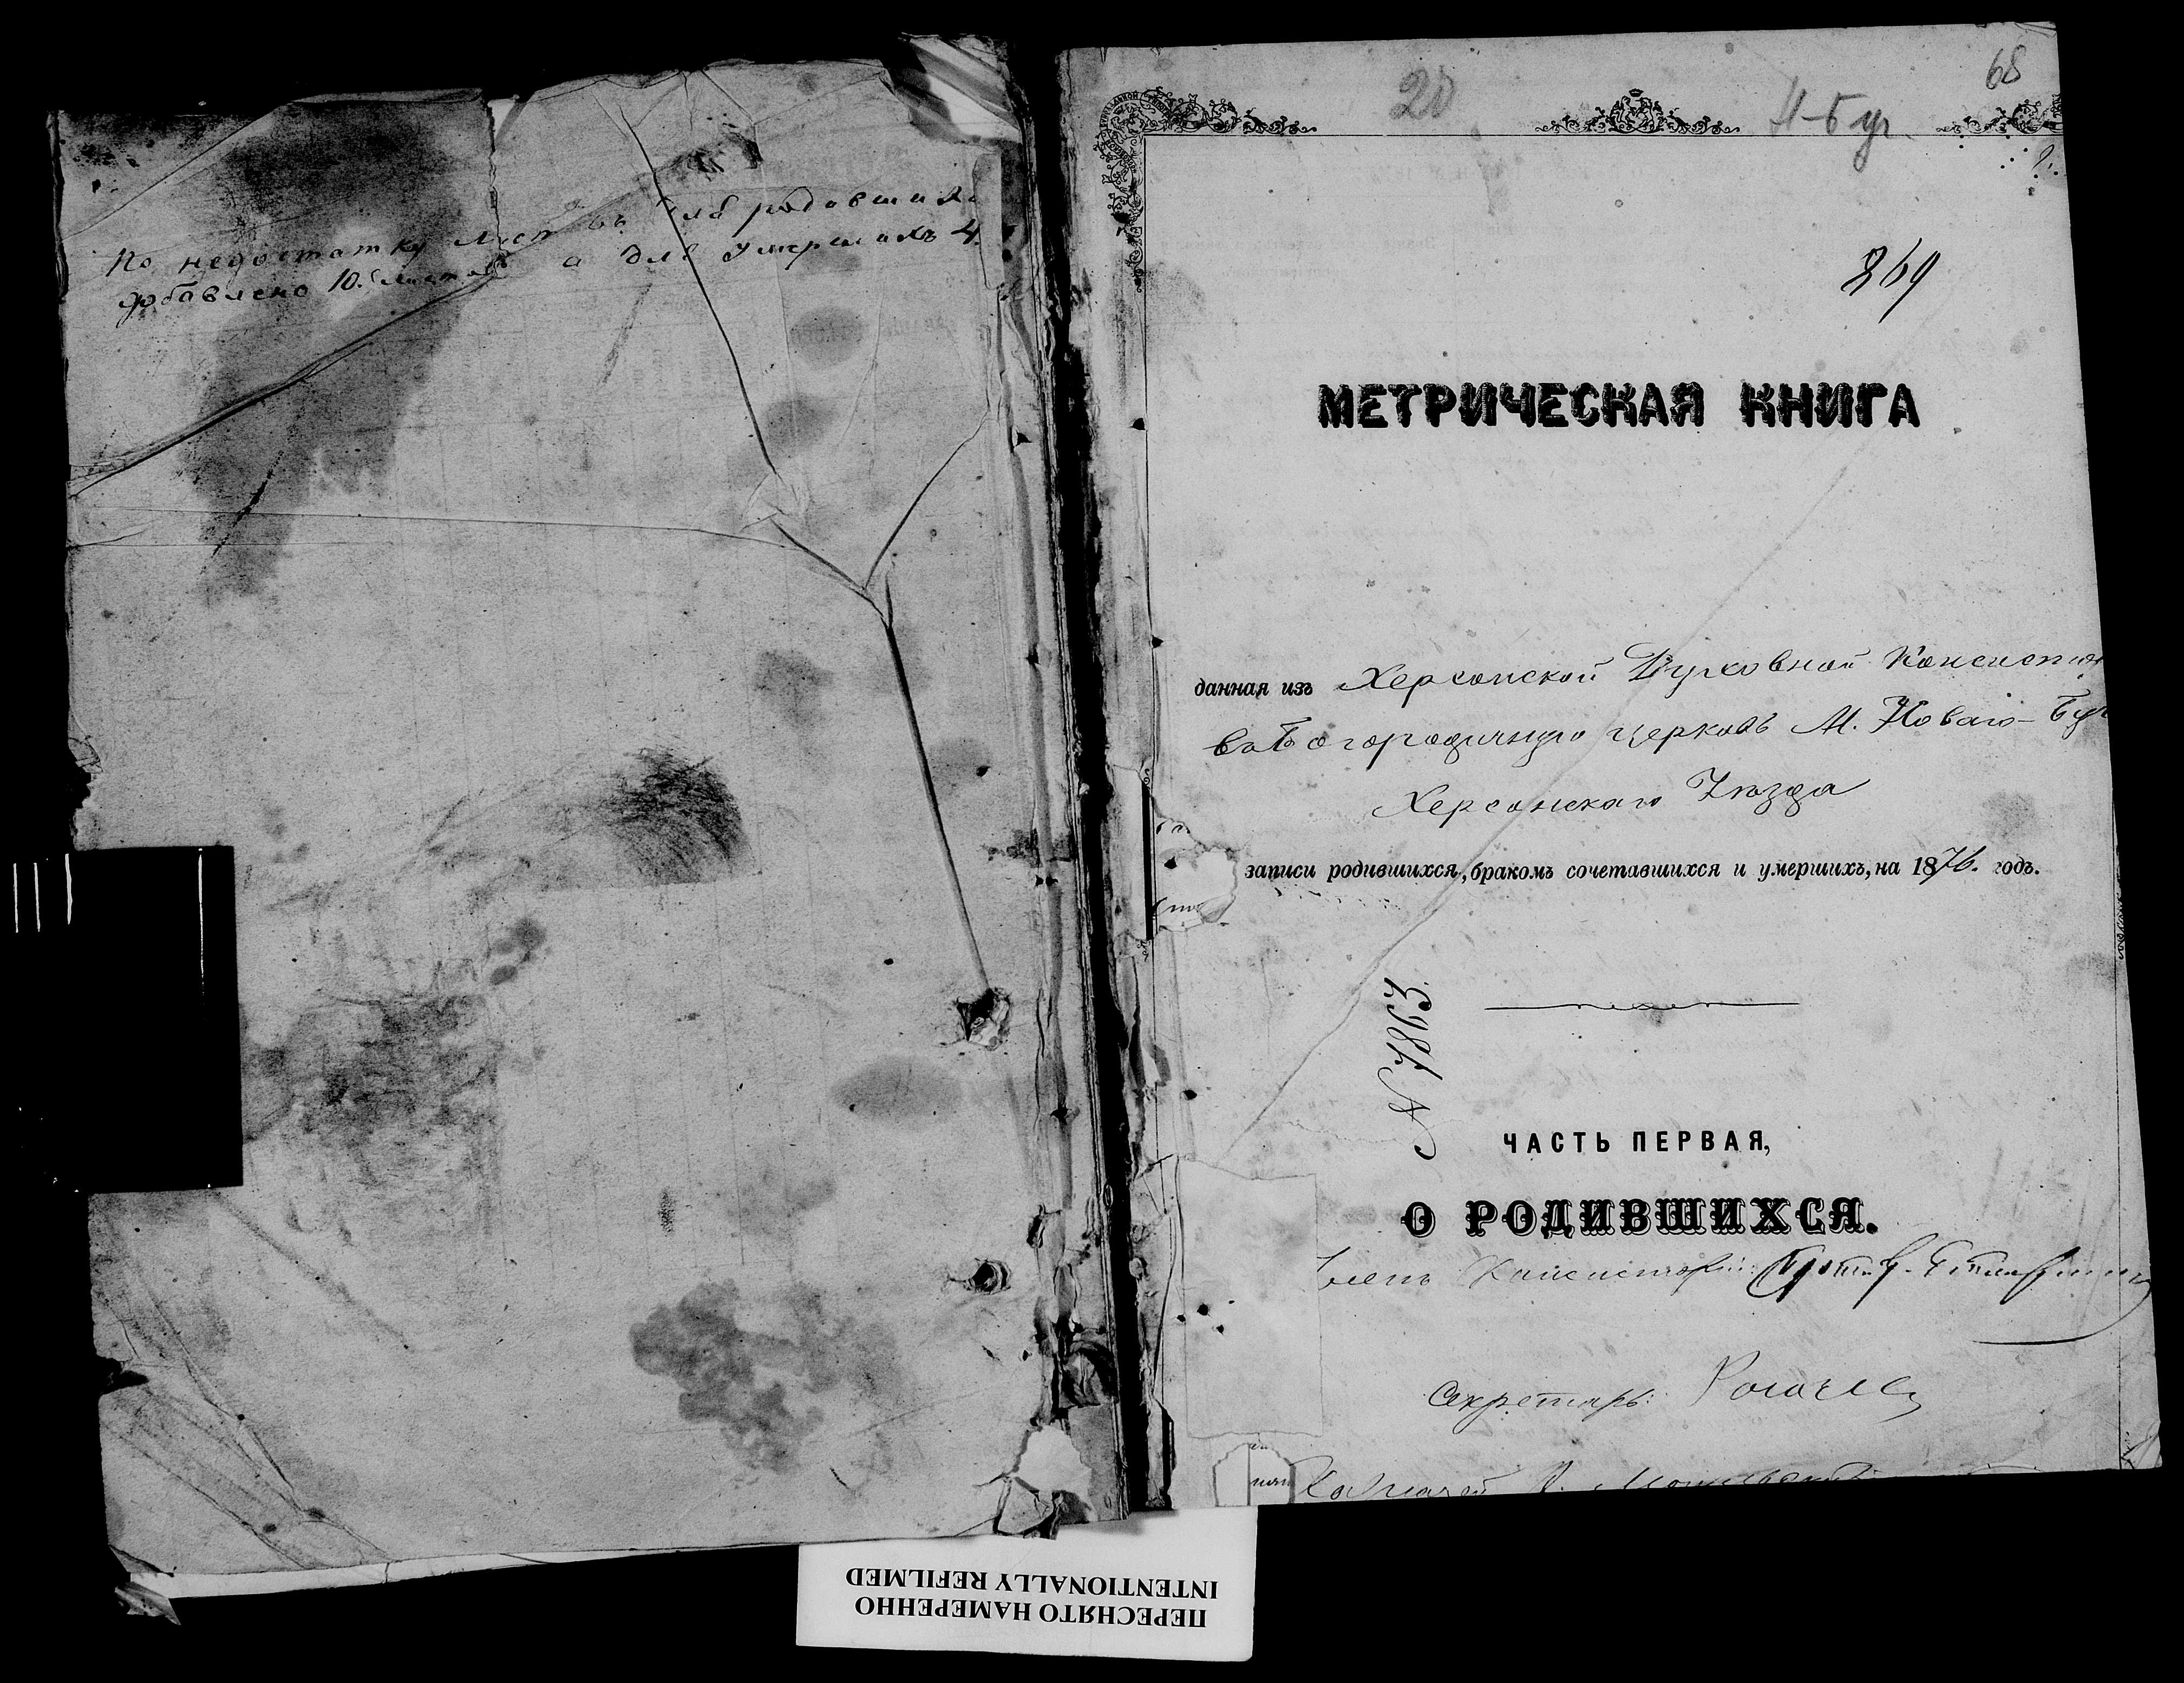 По недостатку листовъ для родовшихъ
добавлено 10. листовъ а для умершихъ 4.
68
20
Н-Буг
869
МЕТРИЧЕСКАЯ КНИГА
данная изъ Херсонской Духовной Консистор
въ Богородичную церковь М. Новаго-Буг
Херсонскаго Уѣзда
записи родившихся, бракомъ сочетавшихся и умершихъ, на 1876. годъ.
N 7893.
ЧАСТЬ ПЕРВАЯ,
О РОДИВШИХСЯ.
Членъ Консисторіи:
Секретарь:
ПЕРЕСНЯТО НАМЕРЕННО
INTENTIONALLY REFILMED